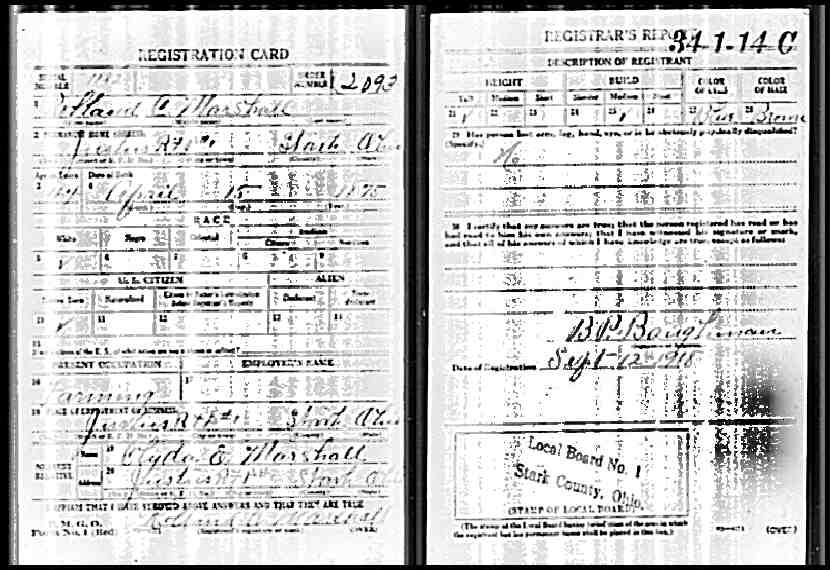 REGISTRATION CARD
SERIAL NUMBER
ORDER NUMBER 2093
1 C. Marshall
2 PERMANENT HOME ADDRESS:
Justus R#1 Stark Ohio
Age in Years Date of Birth
3 4 April 15 1875
RACE
White Negro Oriental Indian
Citizen Noncitizen
5 ✓ 6 7 8 9
U. S. CITIZEN ALIEN
Native Born Naturalized Declarant Non-declarant
10 ✓ 11 12 13 14
15
PRESENT OCCUPATION EMPLOYER'S NAME
16 Farming 17
18 PLACE OF EMPLOYMENT OR BUSINESS:
Justus R#1 Stark Ohio
NEAREST RELATIVE Name 19 Clyda E. Marshall
Address 20 Justus R#1 Stark
I AFFIRM THAT I HAVE VERIFIED ABOVE ANSWERS AND THAT THEY ARE TRUE
P. M. G. O.
Form No. 1 (Red) (Registrant's signature or mark) (OVER)
REGISTRAR'S REPORT
34-1-14 C
DESCRIPTION OF REGISTRANT
HEIGHT BUILD COLOR OF EYES COLOR OF HAIR
Tall Medium Short Slender Medium Stout
21 ✓ 22 23 24 25 ✓ 26 27 28 Brown
29 Has person lost arm, leg, hand, eye, or is he obviously physically disqualified?
(Specify.) No
30 I certify that my answers are true; that the person registered has read or has
had read to him his own answers; that I have witnessed his signature or mark,
and that all of his answers of which I have knowledge are true, except as follows:
B. P. Baughman
Date of Registration Sept 12 1918
Local Board No. 1
Stark County, Ohio.
(STAMP OF LOCAL BOARD)
(The stamp of the Local Board having jurisdiction of the area in which
the registrant has his permanent home shall be placed in this box.)
(OVER)